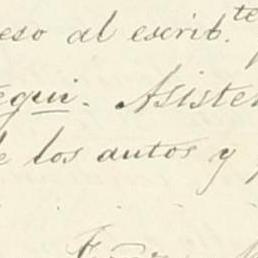 eso al escrib.te
egui. Asisten
e los autos y